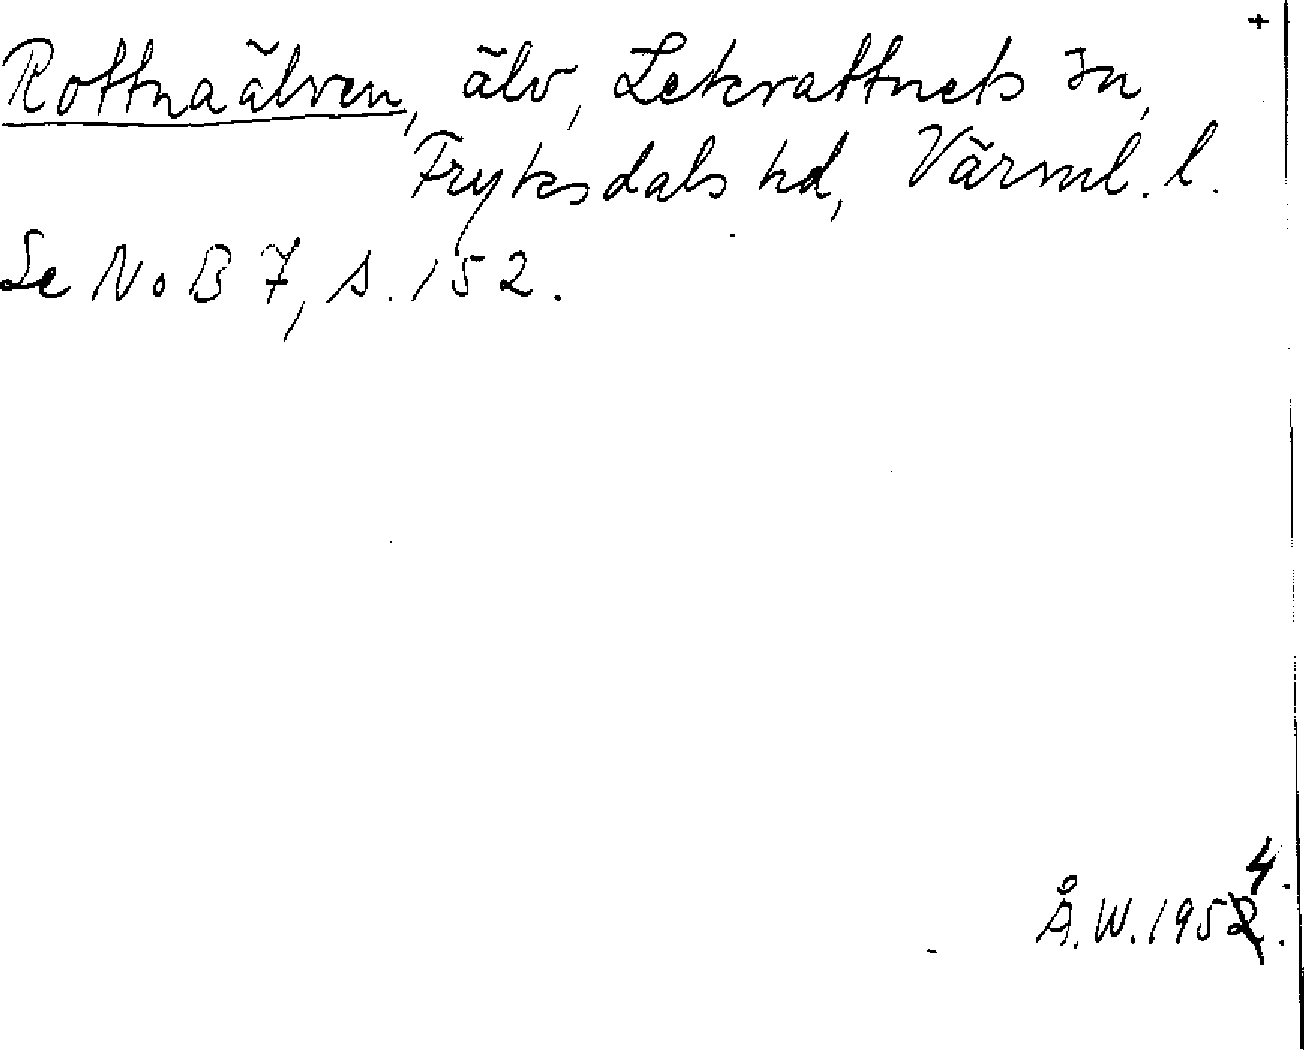 +
Rottnaälven, älv, Lekvattnets sn,
Fryksdals hd, Värml. l.
Se NoB 7, s. 152.
4.
Å.W. 1952.